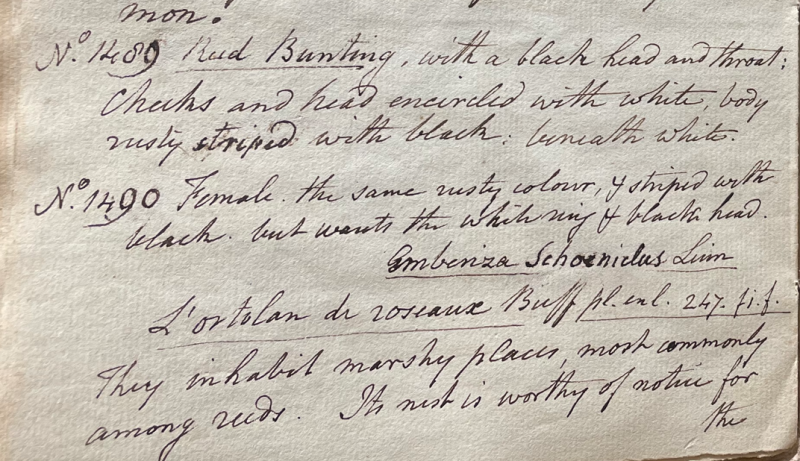 mon.
No. 1489 Reed Bunting, with a black head and throat:
Cheeks and head encircled with white, body
rusty striped with black: beneath white.
No. 1490 Female. the same rusty colour, & striped with
black. but wants the white ring & black head.
Emberiza Schoeniclus Linn
L'ortolan de roseaux Buff pl. enl. 247. fi. f.
They inhabit marshy places, most commonly
among reeds. Its nest is worthy of notice for
the